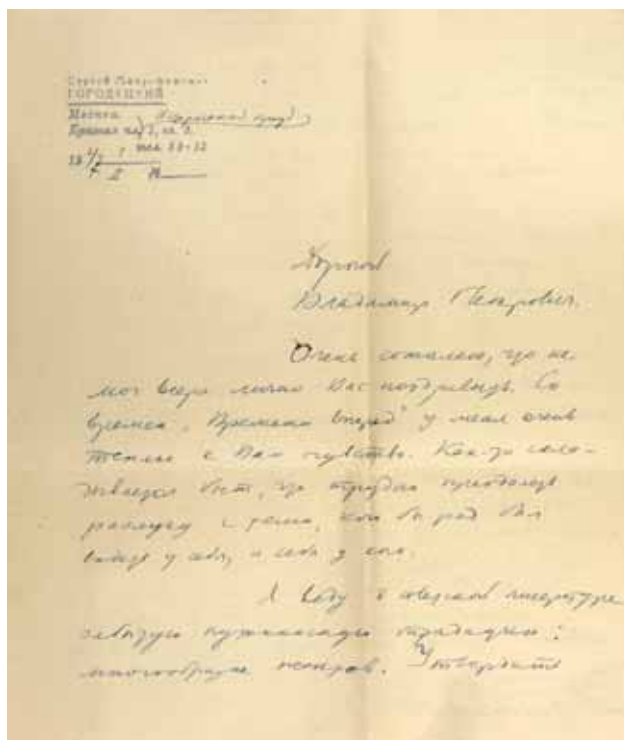 Сергей Митрофанович
ГОРОДЕЦКИЙ
Москва
Красная пл. 1, кв. 2.
тел. 58-12
19
II
Дорогой
Владимир Петрович.
Очень сожалею, что не
мог вчера лично Вас поздравить. Со
времен „Времени вперед" у меня очень
теплые к Вам чувства. Как-то скла-
дывается быт, что трудно преодолеть
разлуку с теми, кого бы рад был
видеть у себя, и себя у них.
Я веду в советской литературе
традицию:
многообразие жанров. Утвердить